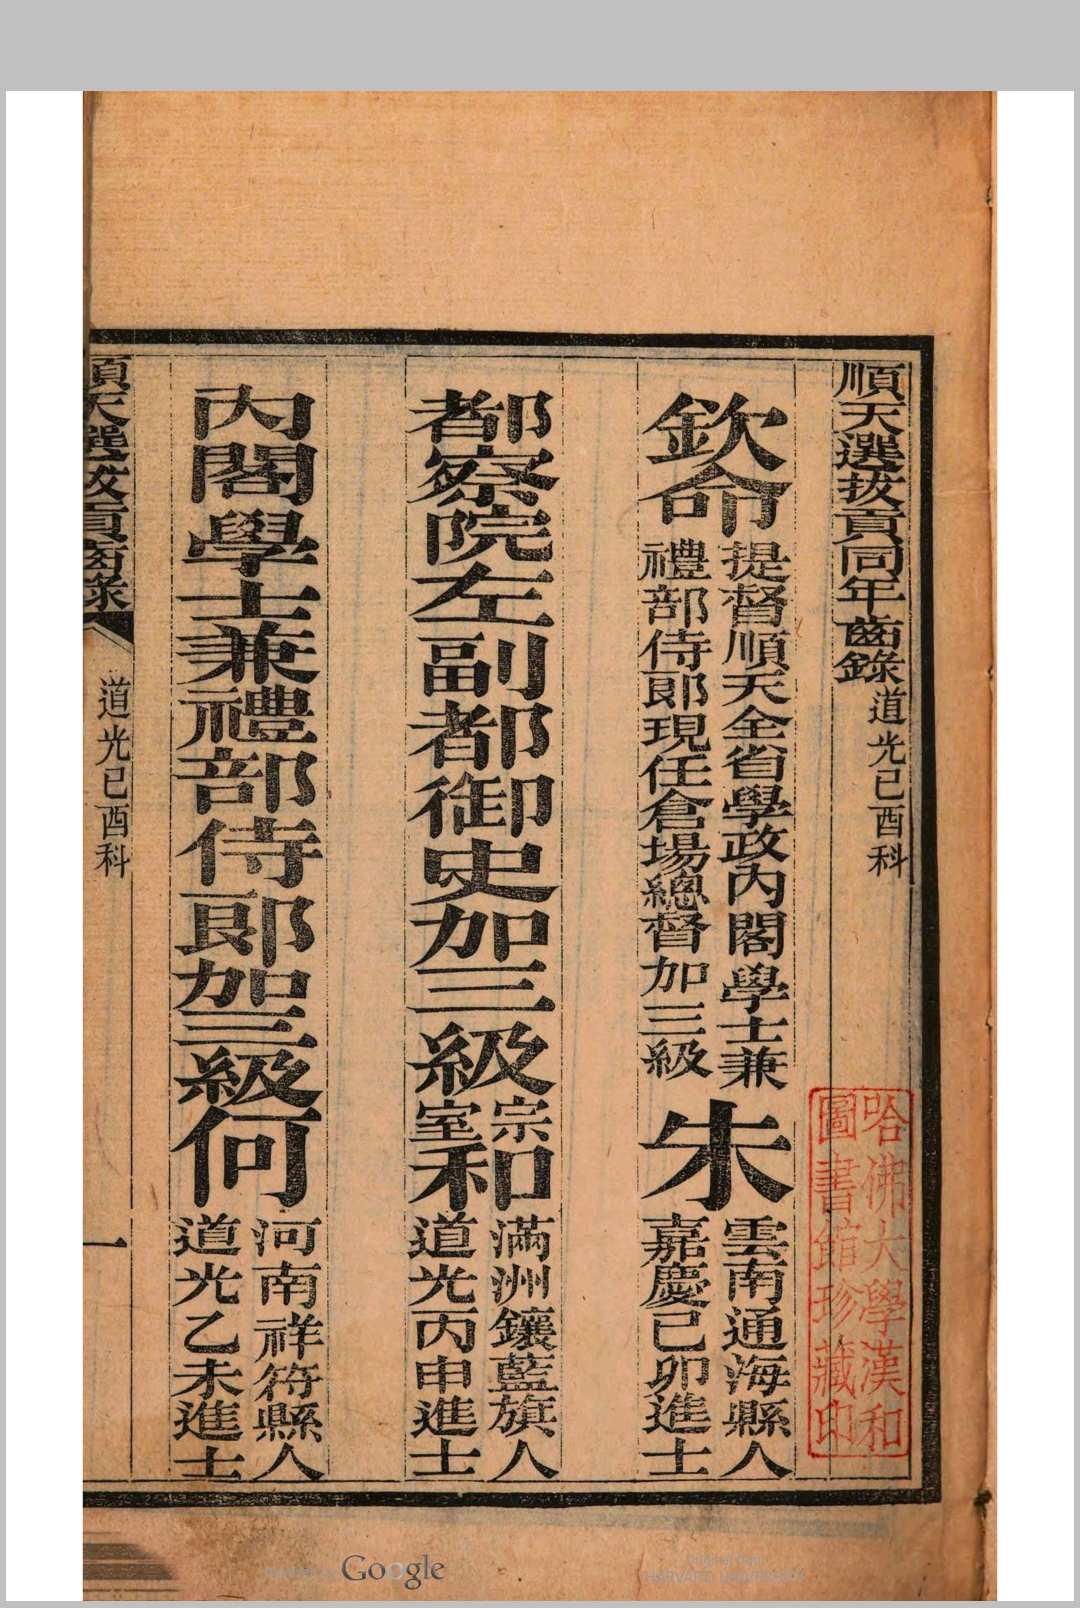 順天選拔貢同年齒錄 道光己酉科
欽命
提督順天全省學政內閣學士兼
禮部侍郎現任倉場總督加三級
朱
雲南通海縣人
嘉慶己卯進士
都察院左副都御史加三級
宗室
和
滿洲鑲藍旗人
道光丙申進士
內閣學士兼禮部侍郎加三級何
河南祥符縣人
道光乙未進士
順天選拔貢齒錄 道光己酉科 一
哈佛大學漢和
圖書館珍藏印
Google
Original from
HARVARD UNIVERSITY